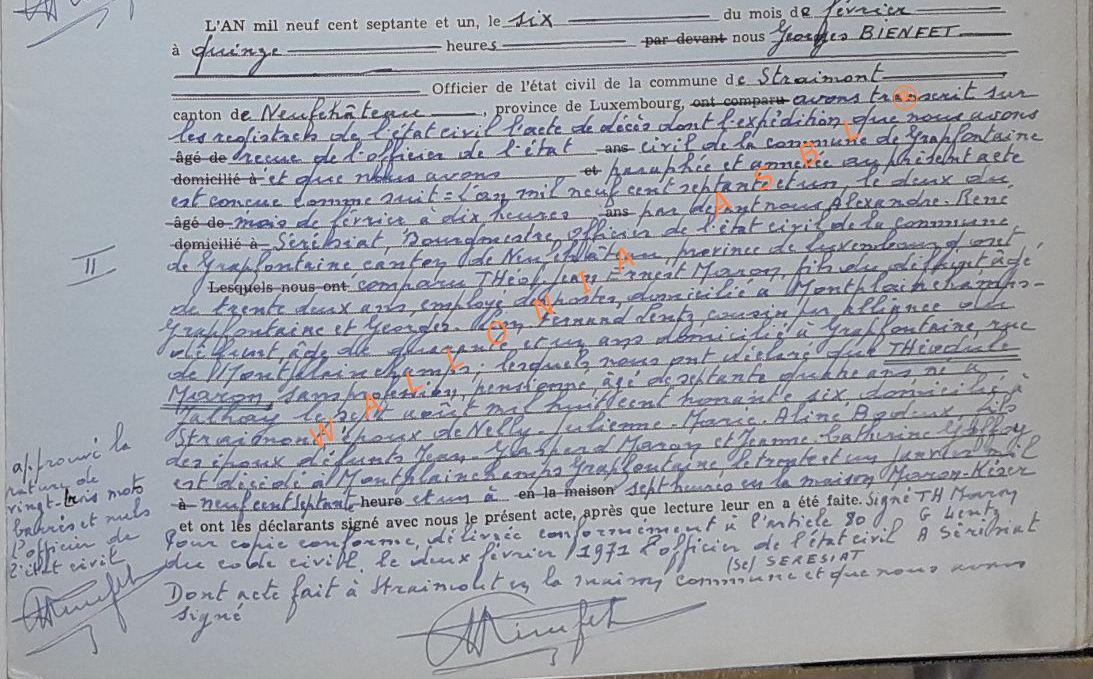 L'AN mil neuf cent septante et un, le six du mois de février
à quinze heures par devant nous Georges BIENFET
Officier de l'état civil de la commune de Straimont
canton de Neufchâteau, province de Luxembourg, ont comparu avons transcrit sur
les registres de l'état civil l'acte de décès dont l'expédition que nous avons
âgé de reçue de l'officier de l'état ans civil de la commune de Grapfontaine
domicilié à et que nous avons et paraphée et annexée au présent acte
est conçue comme suit = L'an mil neuf cent septante et un, le deux du
âgé de mois de février à dix heures ans par devant nous Alexandre. René
domicilié à Sérésiat, Bourgmestre, officier de l'état civil de la commune
II
de Grapfontaine canton de Neufchâteau, province de Luxembourg ont
Lesquels nous ont comparu THéop. Jean Ernest Maron, fils du défunt âgé
de trente deux ans, employé des postes, domicilié à Montplainchamps-
Grapfontaine et Georges. Fernand Lentz, cousin par alliance du
défunt, âgé de quarante et un ans domicilié à Grapfontaine, rue
de Montplainchamps, lesquels nous ont déclaré que THéodule
Maron, sans profession, pensionné, âgé de septante quatre ans né à
le sept août mil huit cent nonante six, domicilié à
Straimont époux de Nelly. Julienne. Marie. Aline Bodeux, fils
des époux défunts Jean. Maron et Jeanne. Catherine
est décédé à Montplainchamps Grapfontaine, le trente et un janvier mil
à neuf cent septante heure et un à en la maison sept heures en la maison Maron-Kiser
et ont les déclarants signé avec nous le présent acte, après que lecture leur en a été faite. Signé TH Maron
G Lentz
Pour copie conforme, délivrée conformément à l'article 80
du code civil, le deux février 1971 l'officier de l'état civil A Sérésiat
(Sé) SERESIAT
Dont acte fait à Straimont en la maison commune et que nous avons
signé
approuvé la
rature de
vingt-trois mots
barrés et nuls
L'officier de
l'état civil
WALLONIA ASBL ®